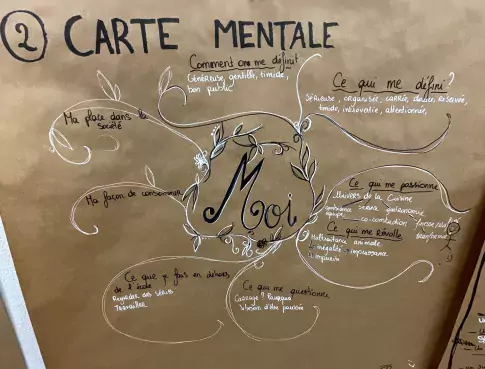 2 CARTE MENTALE
Comment on me définit
Généreuse, gentille, timide,
bon public
Ce qui me défini?
Sérieuse, organisée, carrée, douce, réservée,
timide, introvertie, attentionnée,
Ma place dans la
société
Ma façon de consommer
Moi
Ce qui me passionne
Univers de la Cuisine
gastronomie
Ce qui me Révolte
Maltraitance animale
inégalités impuissance
Ce que je fais en dehors
de l'école
Regarder des séries
Travailler
Ce que me questionne
Courage? Pourquoi